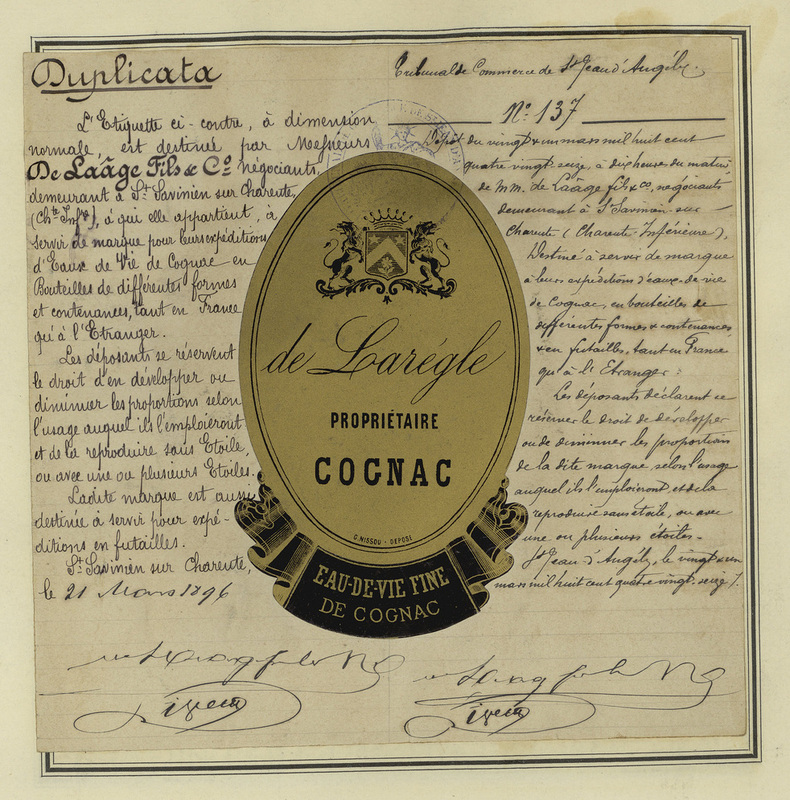 Duplicata
L'Etiquette ci-contre, à dimension
normale, est destinée par Messieurs
De Laâge Fils & Cº négociants,
demeurant à St Savinien sur Charente,
(Chte Infre), à qui elle appartient, à
servir de marque pour leurs expéditions
d'Eaux de Vie de Cognac en
Bouteilles de différentes formes
et contenances, tant en France
qu'à l'Etranger.
Les déposants se réservent
le droit d'en développer ou
diminuer les proportions selon
l'usage auquel ils l'emploieront
et de la reproduire sans Etoile,
ou avec une ou plusieurs Etoiles.
Ladite marque est aussi
destinée à servir pour expé-
ditions en futailles.
St Savinien sur Charente,
le 21 Mars 1896
Tribunal de Commerce de St Jean d'Angély.
Nº 137
Dépôt du vingt & un mars mil huit cent
quatre vingt-seize, à dix heures du matin
de M.M. de Laâge fils & co, négociants
demeurant à St Savinien sur
Charente (Charente-Inférieure).
Destiné à servir de marque
à leurs expéditions d'eaux-de-vie
de Cognac, en bouteilles de
différentes formes & contenances
& en futailles, tant en France
qu'à l'Etranger :
Les déposants déclarent se
réserver le droit de développer
ou de diminuer les proportions
de la dite marque selon l'usage
auquel ils l'emploieront, et de la
reproduire sans étoile, ou avec
une ou plusieurs étoiles.
St Jean-d'Angély, le vingt & un
mars mil huit cent quatre vingt-seize /.
de Larégle
PROPRIÉTAIRE
COGNAC
G. NISSOU - DÉPOSÉ
EAU-DE-VIE FINE
DE COGNAC